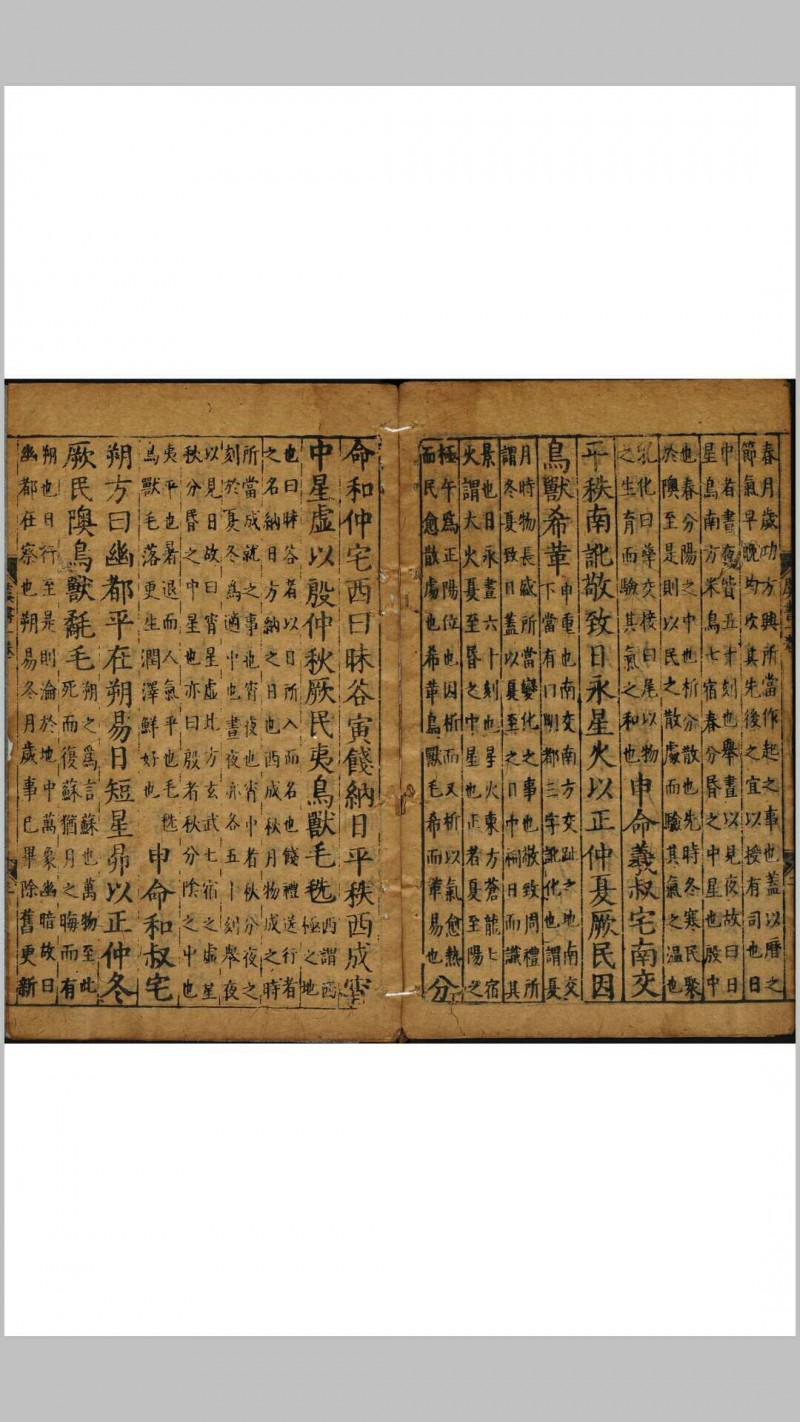 春月歲功方興所當作起之事也蓋以曆之
節氣早晚均次其先後之宜以授有司也日
中者晝夜皆五十刻也舉晝以見夜故曰日
星鳥南方朱鳥七宿春分昏之中星也殷中
也春分陽之中也析分散也先時冬寒民聚
於隩至是則以民之散處而驗其氣之溫也
乳化曰孳交接曰尾以物
之生育而驗其氣之和也
申命羲叔宅南交
平秩南訛敬致日永星火以正仲夏厥民因
鳥獸希革
申重也南交南方交趾之地南交
下當有曰明都三字訛化也謂夏
月時物長盛所當變化之事也敬致周禮所
謂冬夏致日蓋以夏至之日中祠日而識其
景也日永晝六十刻也星火東方蒼龍七宿
火謂大火夏至昏之中星也正者夏至陽之
極午爲正陽位也因析而又析以氣愈熱
而民愈散處也希革鳥獸毛希而革易也
分
命和仲宅西曰昧谷寅餞納日平秩西成宵
中星虛以殷仲秋厥民夷鳥獸毛毨
西謂西
極之地
也曰昧谷者以日所入而名也餞禮送行者
之名納日方納之日也西成秋月物成之時
所當成就之事也宵夜也宵中者秋分夜之
刻於夏冬爲適中也晝夜亦各五十刻舉夜
以見日故曰宵星虛北方玄武七宿之虛星
秋分昏之中星也亦曰殷者秋分陰之中也
夷平也暑退而人氣平也毛毨
鳥獸毛落更生潤澤鮮好也
申命和叔宅
朔方曰幽都平在朔易日短星昴以正仲冬
厥民隩鳥獸氄毛
朔之爲言蘇也萬物至此
死而復蘇猶月之晦而有
朔也日行至是則淪於地中萬象幽暗故曰
幽都在察也朔易冬月歲事已畢除舊更新